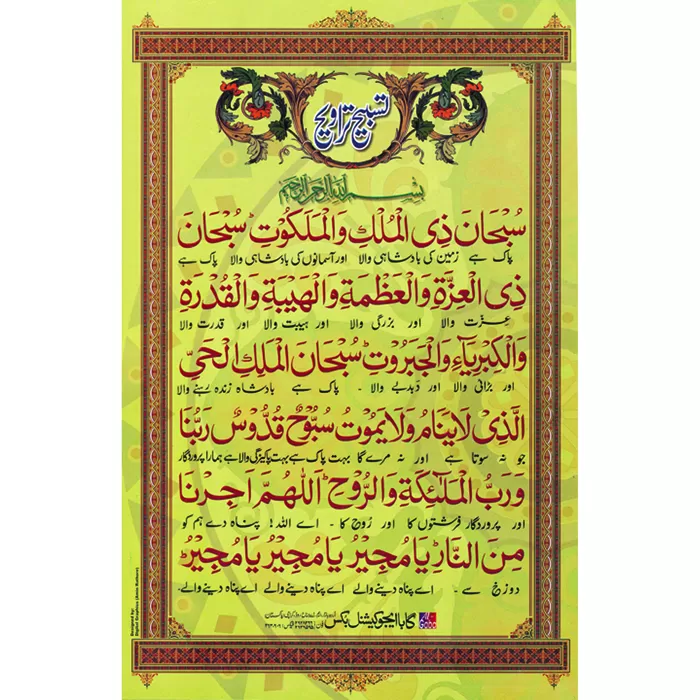 تسبیح تراویح
بسم اللہ الرحمن الرحیم
سُبْحَانَ ذِی الْمُلْكِ وَالْمَلَكُوْتِ سُبْحَانَ
پاک ہے زمین کی بادشاہی والا اور آسمانوں کی بادشاہی والا پاک ہے
ذِی الْعِزَّةِ وَالْعَظَمَةِ وَالْهَيْبَةِ وَالْقُدْرَةِ
عزت والا اور بزرگی والا اور ہیبت والا اور قدرت والا
وَالْكِبْرِيَآءِ وَالْجَبَرُوْتِ سُبْحَانَ الْمَلِكِ الْحَیِّ
اور بڑائی والا اور دبدبے والا ۔ پاک ہے بادشاہ زندہ رہنے والا
الَّذِیْ لَایَنَامُ وَلَایَمُوْتُ سُبُّوْحٌ قُدُّوْسٌ رَبُّنَا
جو نہ سوتا ہے اور نہ مرے گا بہت پاک ہے بہت پاکیزگی والا ہے ہمارا پروردگار
وَرَبُّ الْمَلٰٓئِكَةِ وَالرُّوْحِ اَللّٰهُمَّ اَجِرْنَا
اور پروردگار فرشتوں کا اور رُوح کا ۔ اے اللہ! پناہ دے ہم کو
مِنَ النَّارِ یَامُجِیْرُ یَامُجِیْرُ یَامُجِیْرُ
دوزخ سے ۔ اے پناہ دینے والے اے پناہ دینے والے اے پناہ دینے والے۔
گابا ایجوکیشنل بکس
Designed by:
Digital Graphics